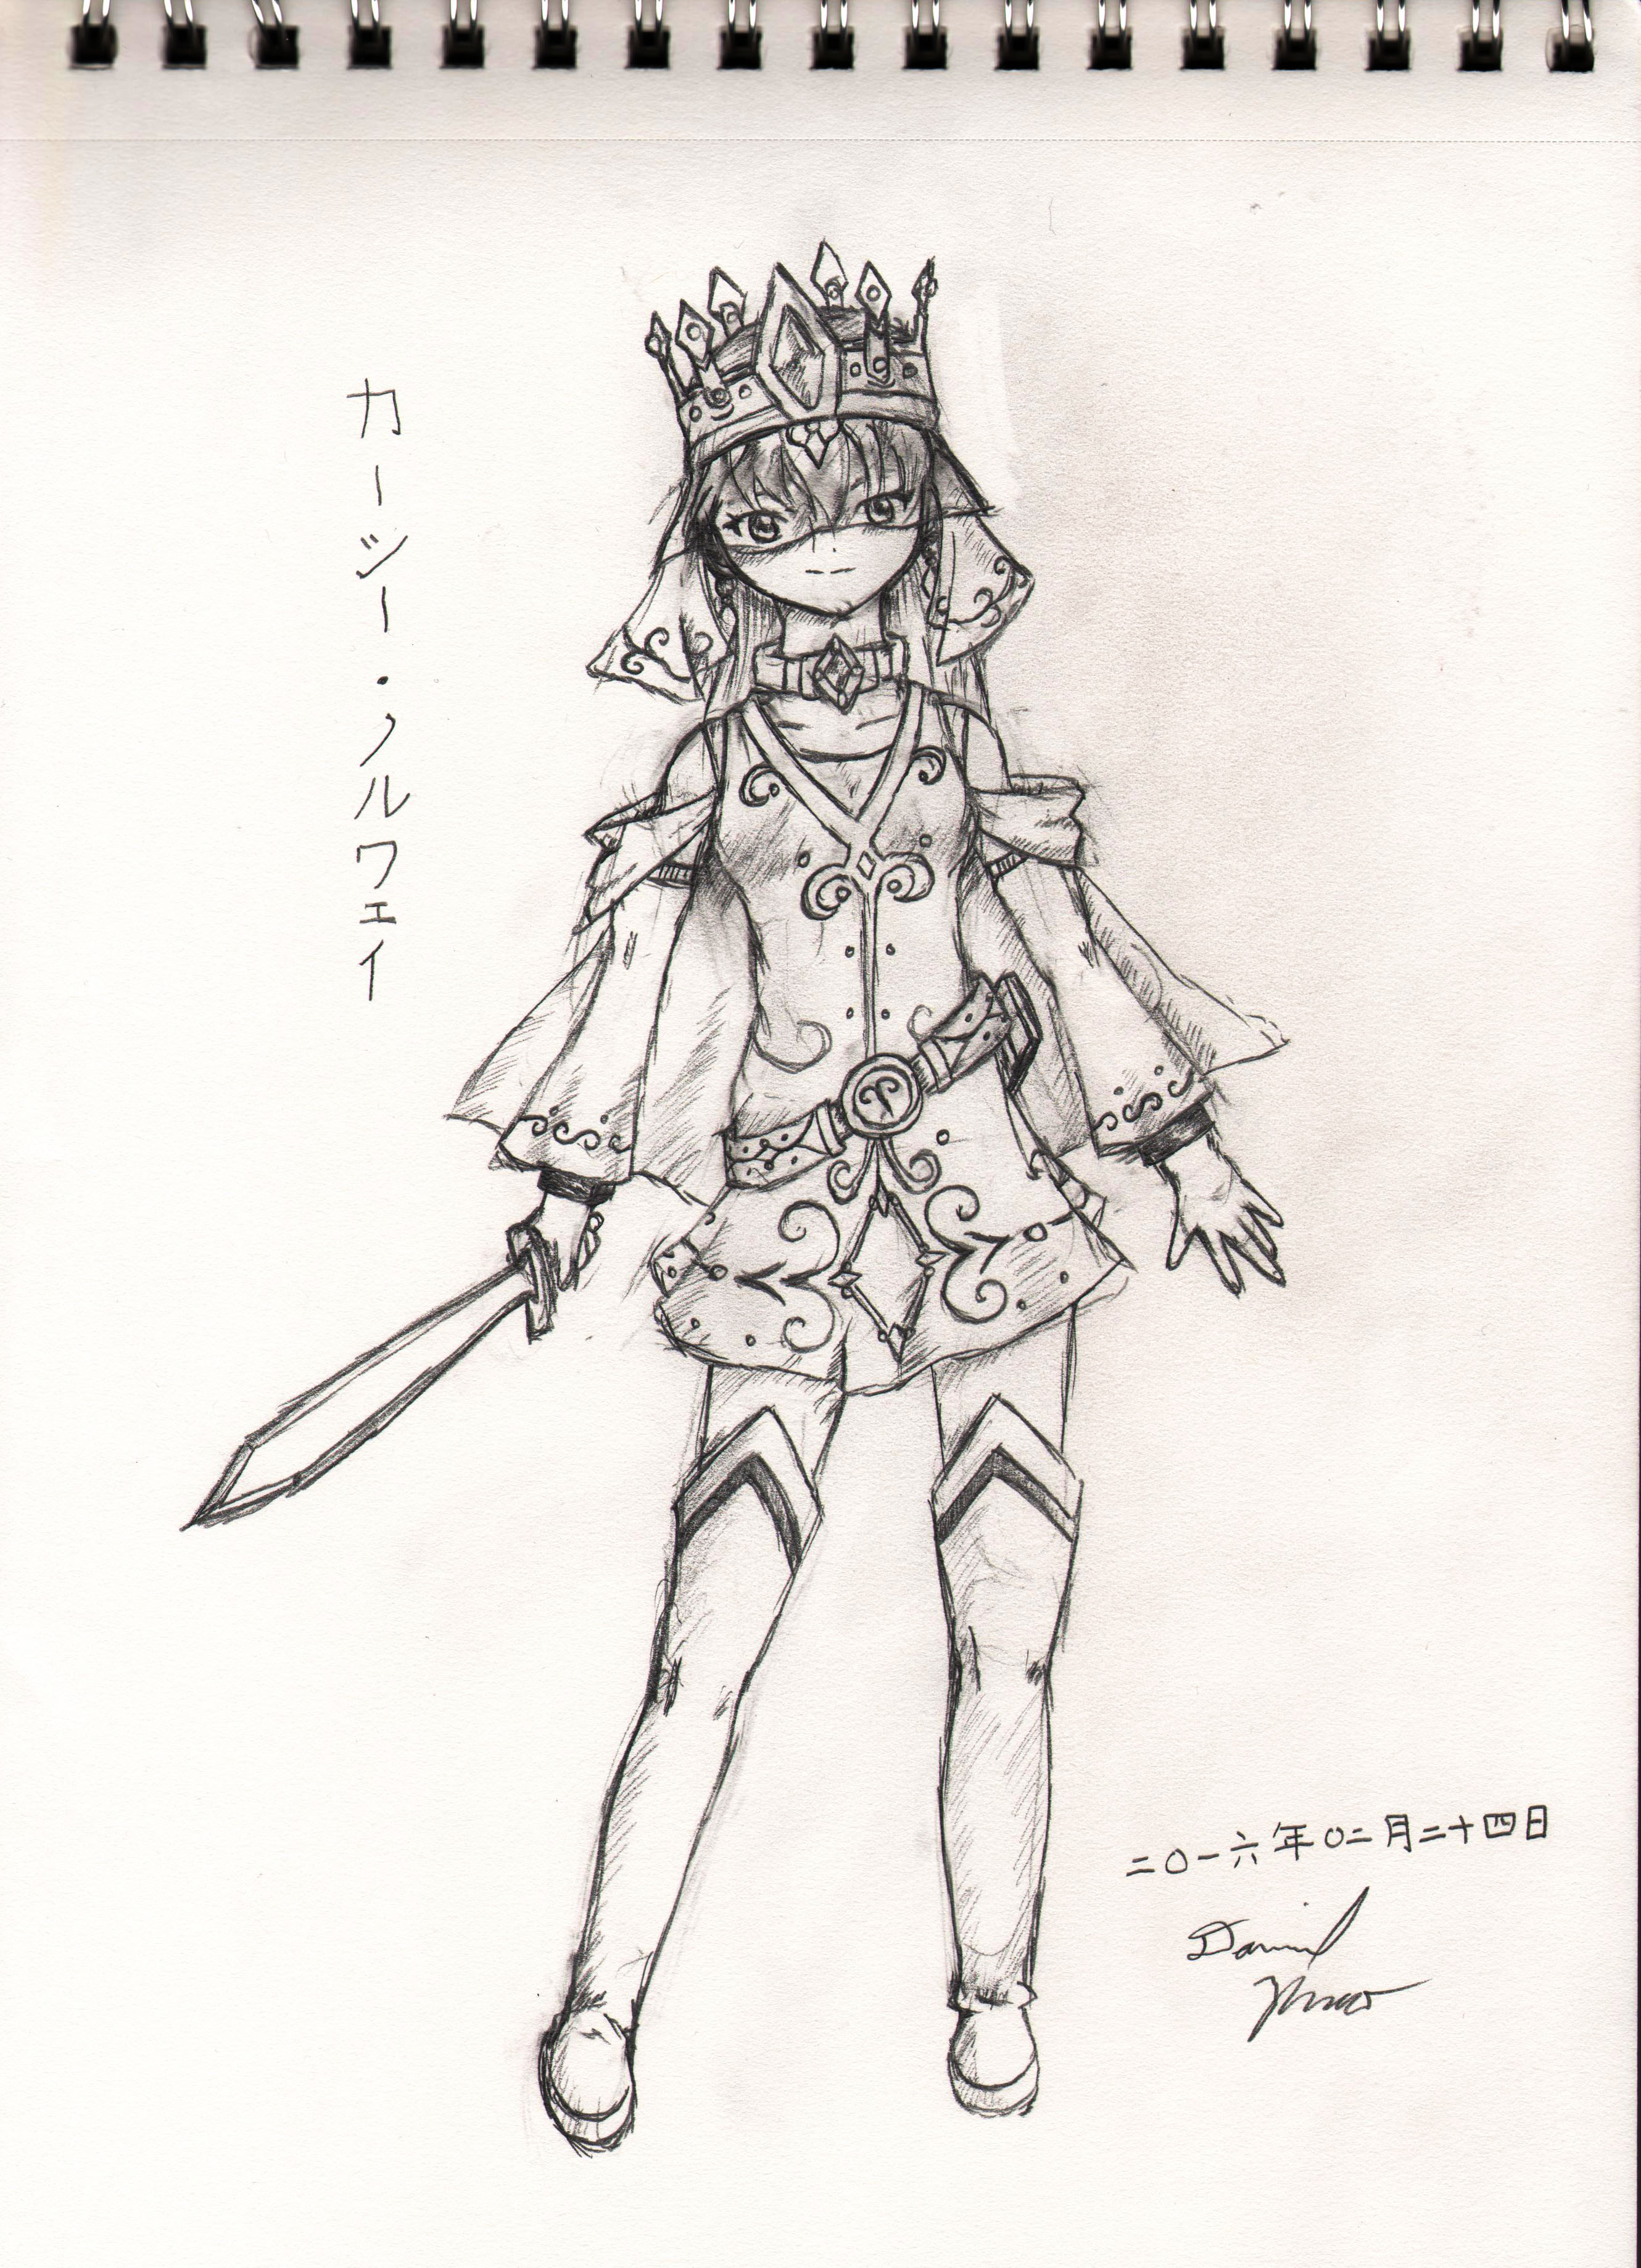 カーシー・ノルワェイ
二〇一六年〇二月二十四日
Daniel